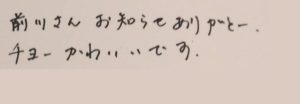 前川さん お知らせありがとー.
チョーかわいいです.